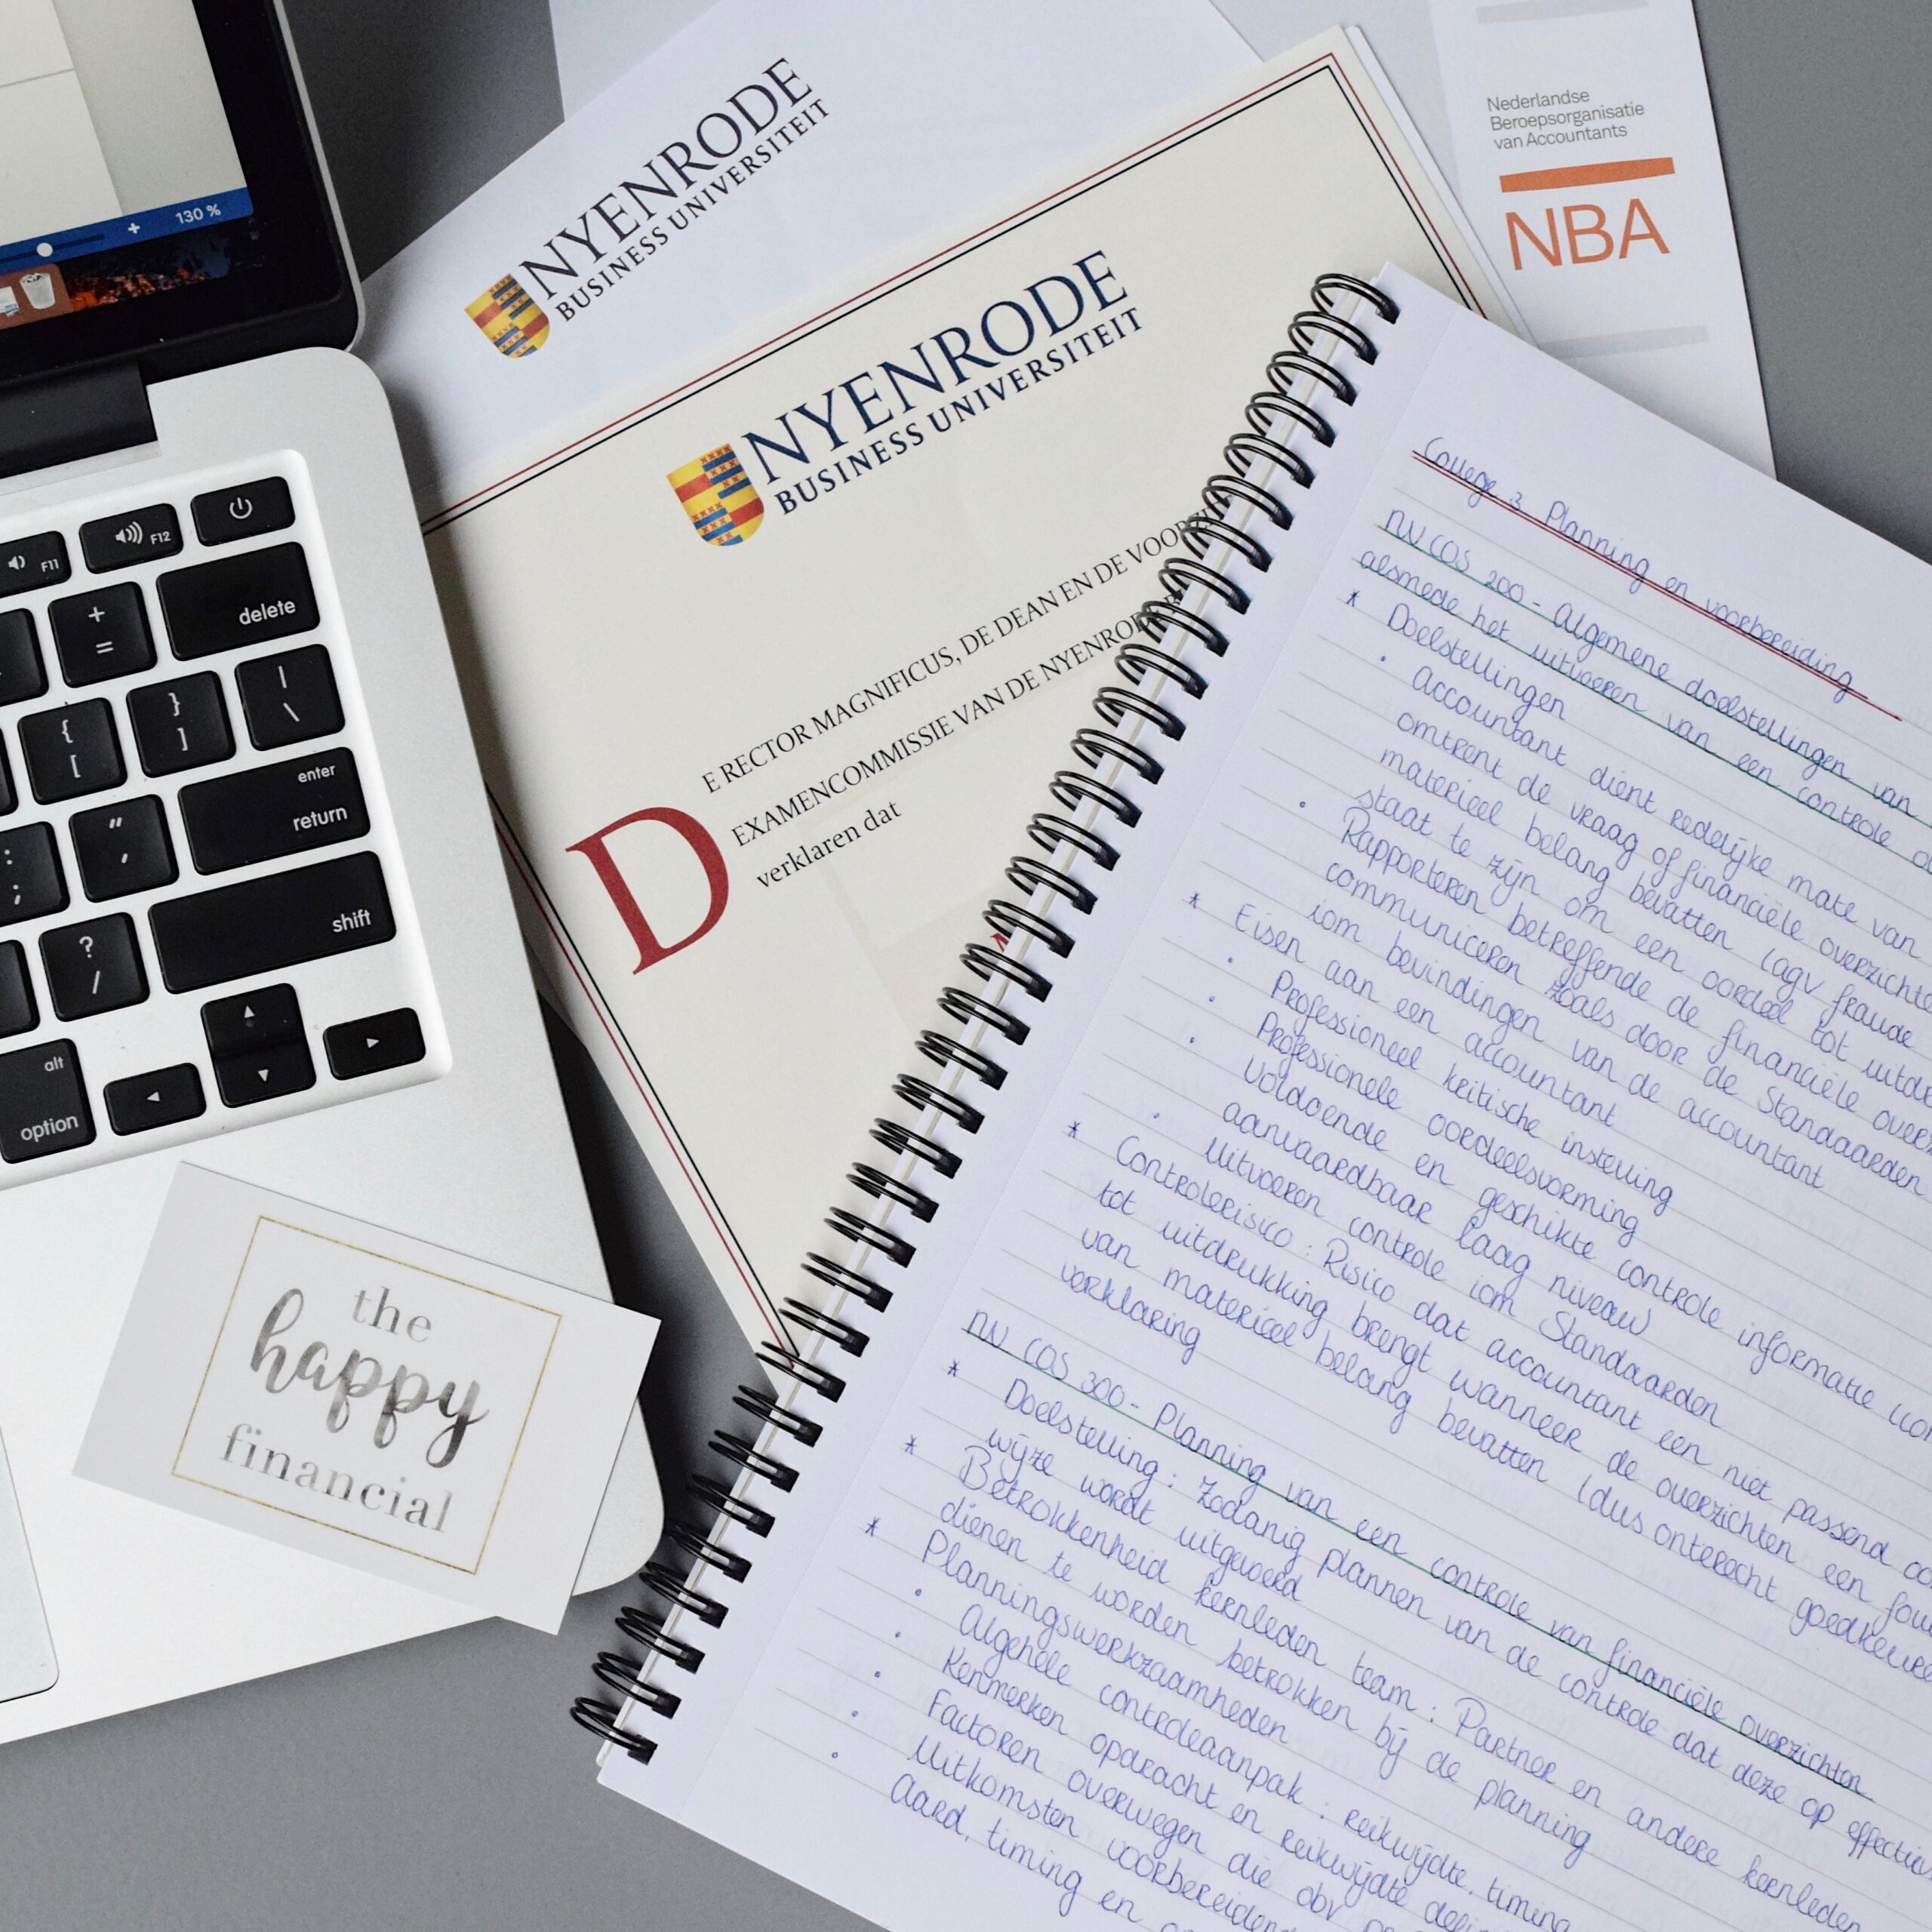 130 %
F11
F12
+
=
delete
{
[
}
]
|
\
:
;
"
,
enter
return
?
/
shift
alt
option
the
happy
financial
NYENRODE
BUSINESS UNIVERSITEIT
NYENRODE
BUSINESS UNIVERSITEIT
DE RECTOR MAGNIFICUS, DE DEAN EN DE
EXAMENCOMMISSIE VAN DE
verklaren dat
Nederlandse
Beroepsorganisatie
van Accountants
NBA
College 3 Planning en voorbereiding
NV COS 200 - Algemene doelstellingen van
alsmede het uitvoeren van een controle
* Doelstellingen
• Accountant dient redelijke mate van
omtrent de vraag of financiële
materieel belang bevatten (agv fraude
staat te zijn om een oordeel tot
• Rapporteren betreffende de financiële
communiceren zoals door de Standaarden
iom bevindingen van de accountant
* Eisen aan een accountant
• Professioneel kritische instelling
• Professionele oordeelsvorming
• Voldoende en geschikte controle informatie
aanvaardbaar laag niveau)
• Uitvoeren controle iom Standaarden
* Controlerisico : Risico dat accountant een niet passend
tot uitdrukking brengt wanneer de overzichten een
van materieel belang bevatten (dus onterecht
verklaring
NV COS 300 - Planning van een controle van financiële overzichten
* Doelstelling : Zodanig plannen van de controle dat deze op
wijze wordt uitgevoerd
* Betrokkenheid kernleden team : Partner en andere kernleden
dienen te worden betrokken bij de planning
* Planningswerkzaamheden
• Algehele controleaanpak : reikwijdte, timing
• Kenmerken opdracht en reikwijdte
• Factoren overwegen die obv
• Uitkomsten
• Aard, timing en